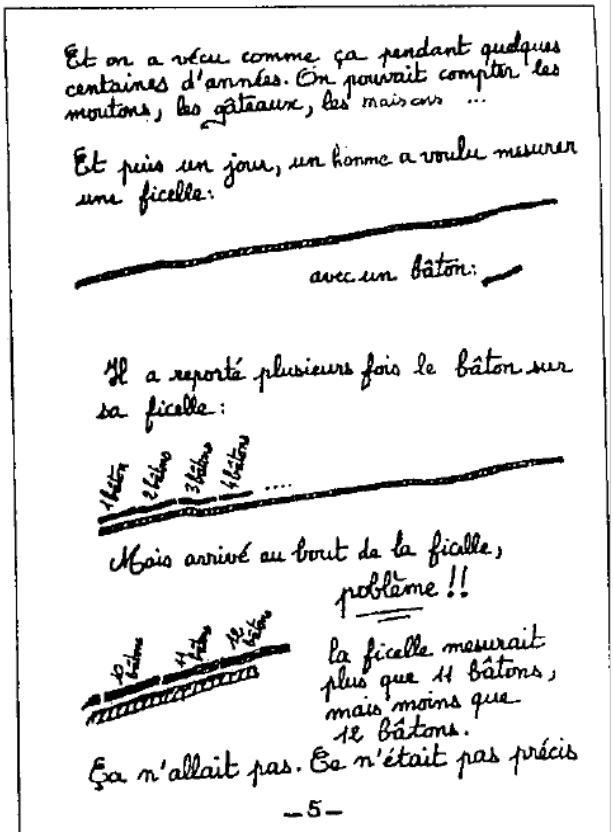 Et on a vécu comme ça pendant quelques
centaines d'années. On pouvait compter les
moutons, les gâteaux, les maisons ...
Et puis un jour, un homme a voulu mesurer
une ficelle:
avec un bâton:
Il a reporté plusieurs fois le bâton sur
sa ficelle :
1 bâton 2 bâtons 3 bâtons 4 bâtons ....
Mais arrivé au bout de la ficelle,
poblème !!
10 bâtons 11 bâtons 12 bâtons
la ficelle mesurait
plus que 11 bâtons,
mais moins que
12 bâtons.
Ça n'allait pas. Ce n'était pas précis
-5-